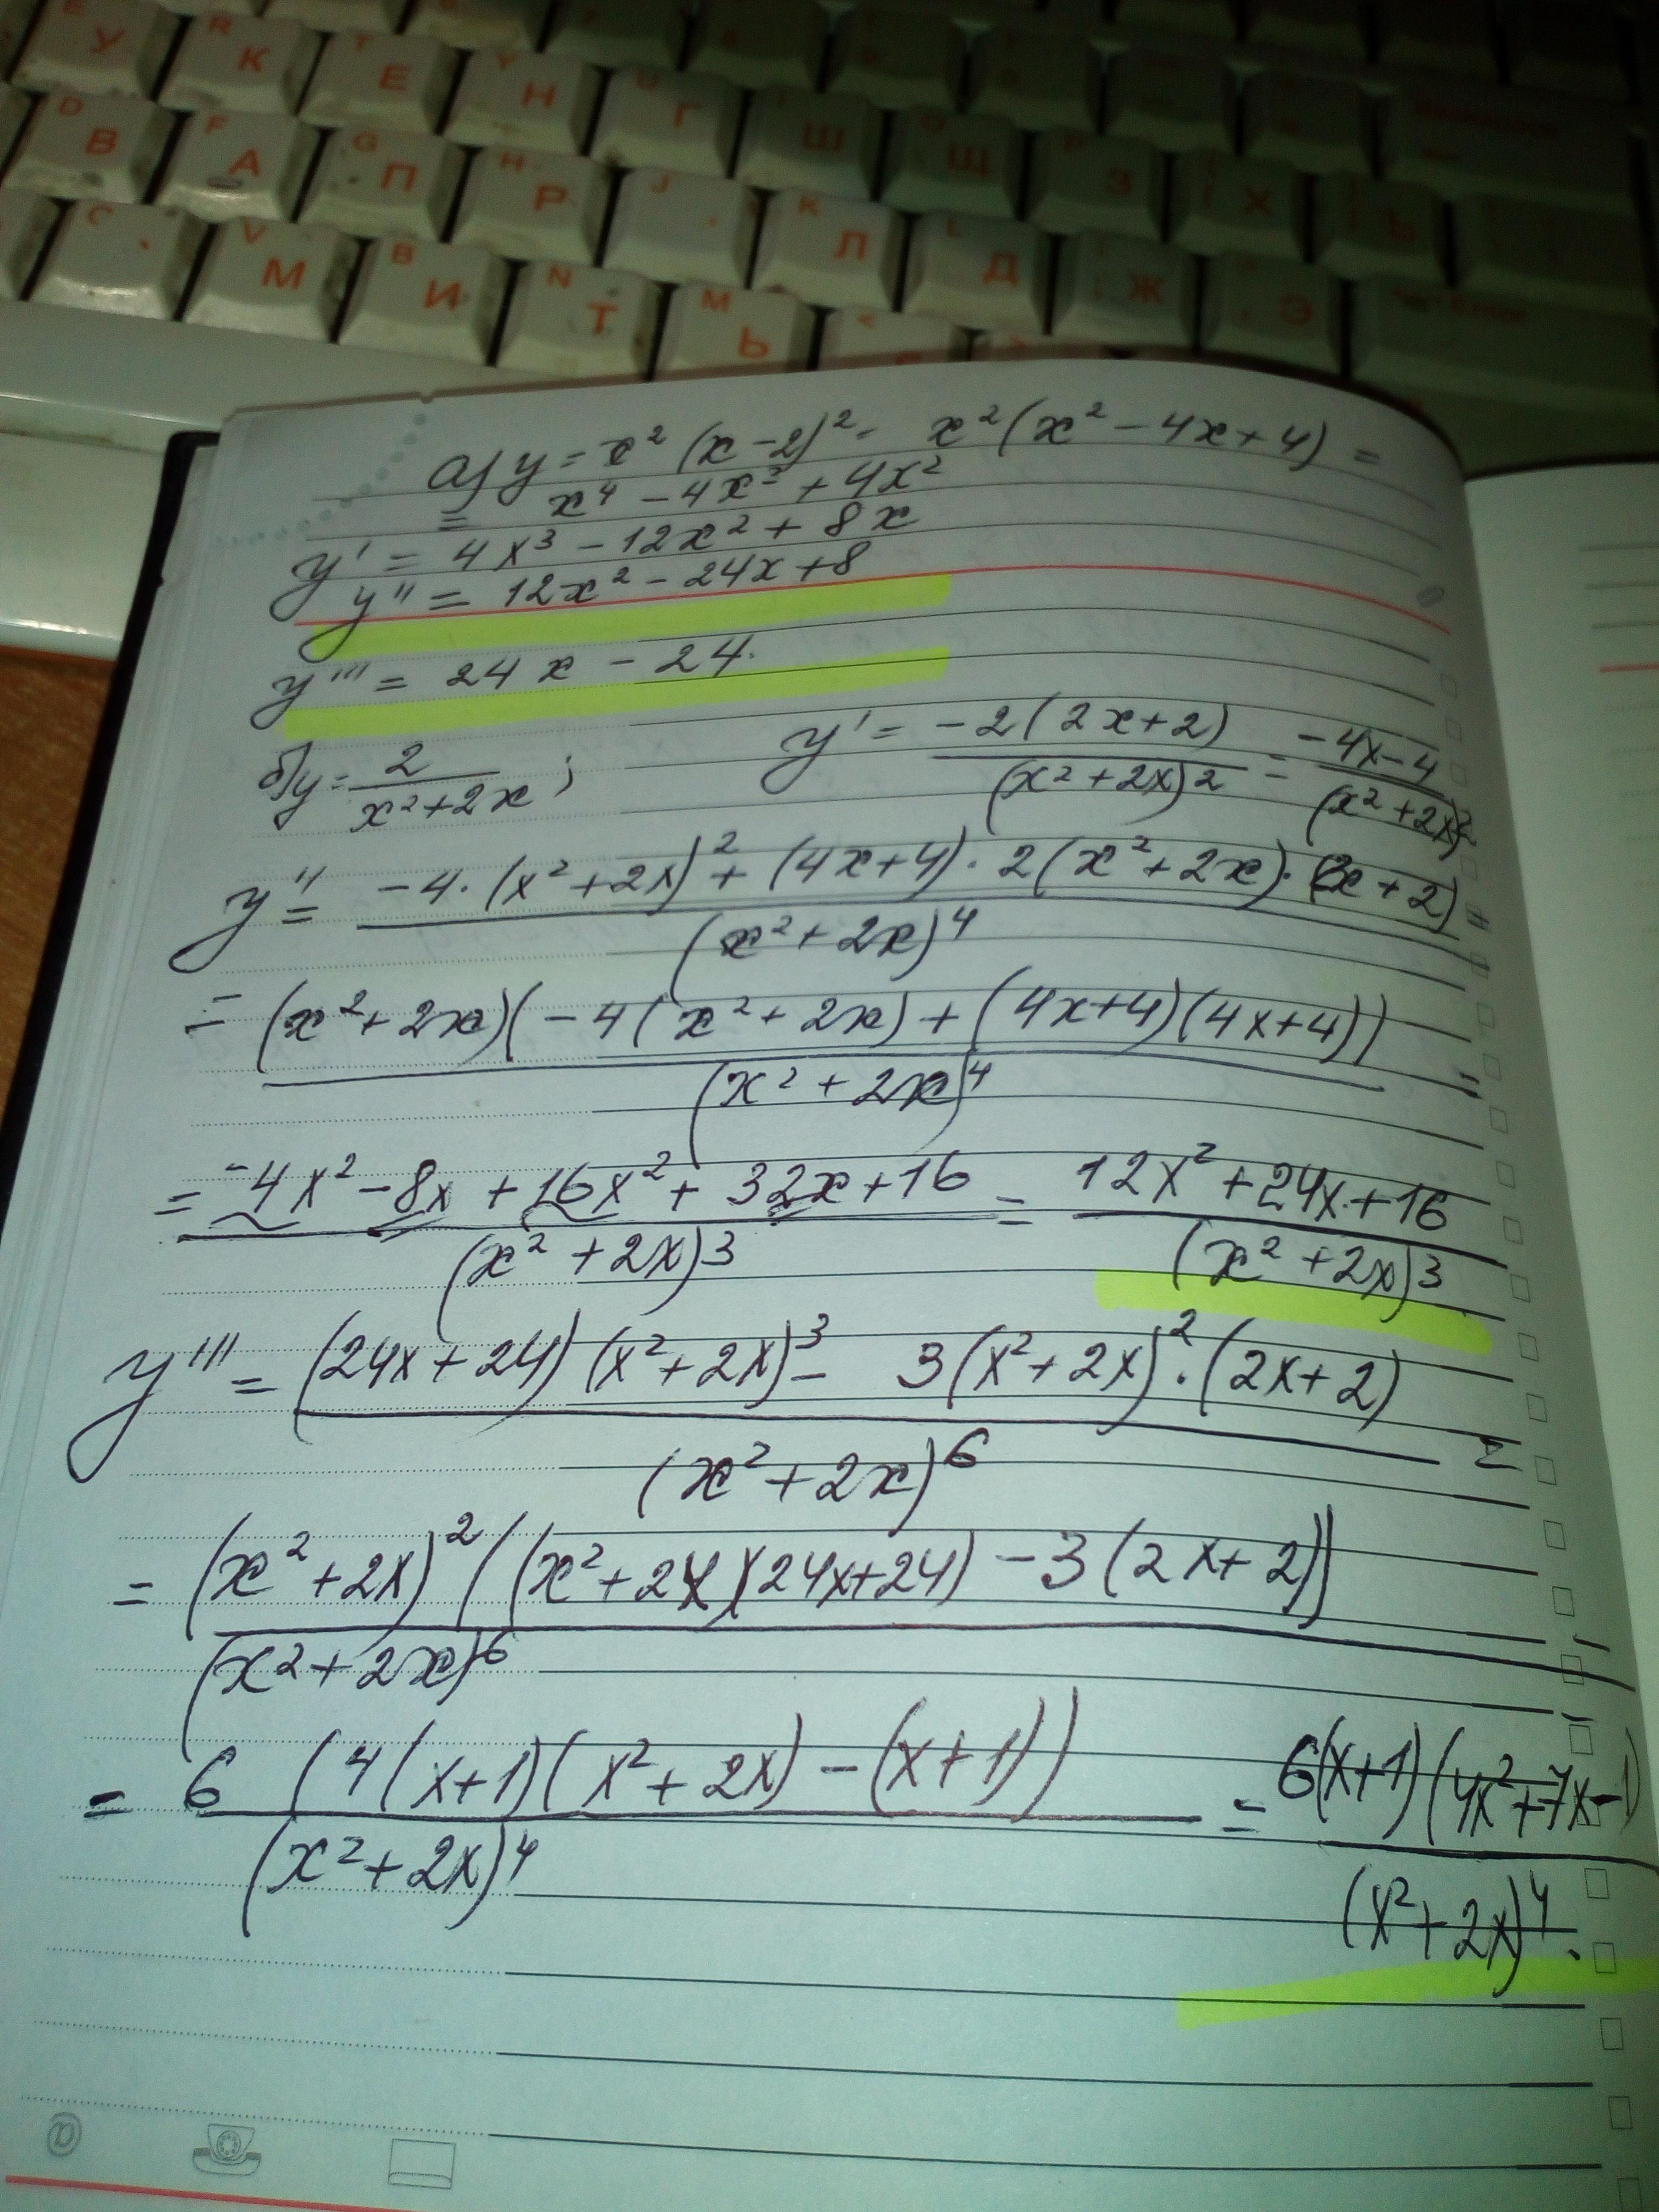 E R T Y U
У К Е Н Г
D F G H J K L
В А П Р Л Д Ж Э
Ш Щ З Х
C V B N M
М И Т Ь
а) y = x² (x - 2)² = x² (x² - 4x + 4) =
= x⁴ - 4x³ + 4x²
y' = 4x³ - 12x² + 8x
y'' = 12x² - 24x + 8
y''' = 24x - 24.
б) y = 2/(x² + 2x) ; y' = -2(2x+2)/(x² + 2x)² = (-4x-4)/(x² + 2x)²
y'' = (-4·(x²+2x)² + (4x+4)·2(x²+2x)·(2x+2))/(x²+2x)⁴ =
= (x²+2x)(-4(x²+2x) + (4x+4)(4x+4))/(x²+2x)⁴ =
= (-4x² - 8x + 16x² + 32x + 16)/(x²+2x)³ = (12x² + 24x + 16)/(x²+2x)³
y''' = ((24x+24)(x²+2x)³ - 3(x²+2x)²·(2x+2))/(x²+2x)⁶ =
= (x²+2x)²((x²+2x)(24x+24) - 3(2x+2))/(x²+2x)⁶ =
= 6 (4(x+1)(x²+2x) - (x+1))/(x²+2x)⁴ = 6(x+1)(4x²+7x-1)/(x²+2x)⁴.
@